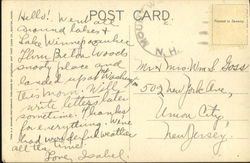 POST CARD.
Hello! Went all
around lakes &
Lake Winnepesaukee
thru Breton Woods
and
landed up at Washington
this morn. Will
write letters later
sometime. Thanks
for everything. Wire
had wonderful weather
all the time.
Love, Isabel
N.H.
Mr & Mrs Wm S. Goss
502 New York Ave,
Union City,
New Jersey.